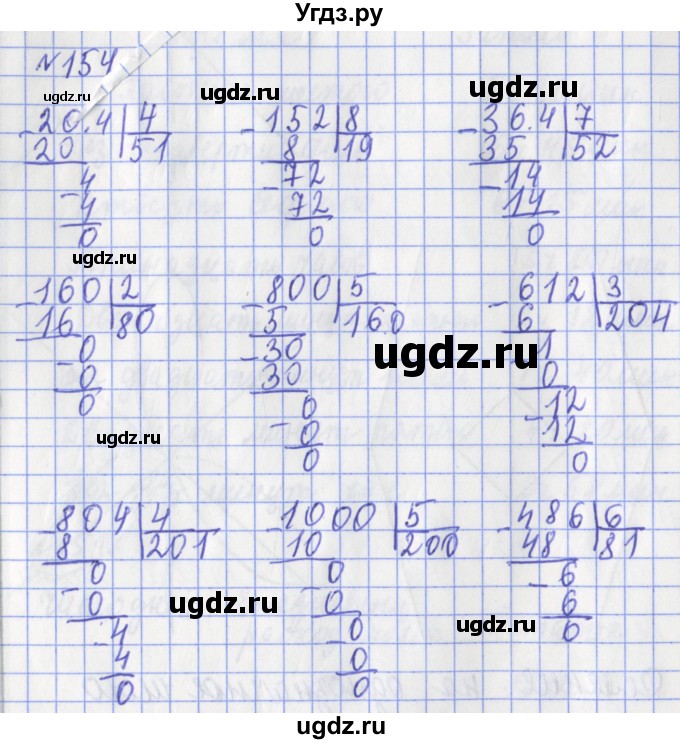 Угдз.ру
№154
ugdz.ru
ugdz.ru
ugdz.ru
-20.4 | 4
20 | 51
-4
4
0
-152 | 8
8 | 19
-72
72
0
-36.4 | 7
35 | 52
-14
14
0
ugdz.ru
-160 | 2
16 | 80
-0
0
0
-800 | 5
5 | 160
-30
30
0
-0
0
-612 | 3
6 | 204
-1
0
-12
12
0
ugdz.ru
ugdz.ru
-804 | 4
8 | 201
-0
0
-4
4
0
-1000 | 5
10 | 200
-0
0
-0
0
0
-486 | 6
48 | 81
-6
6
0
ugdz.ru
ugdz.ru
ugdz.ru